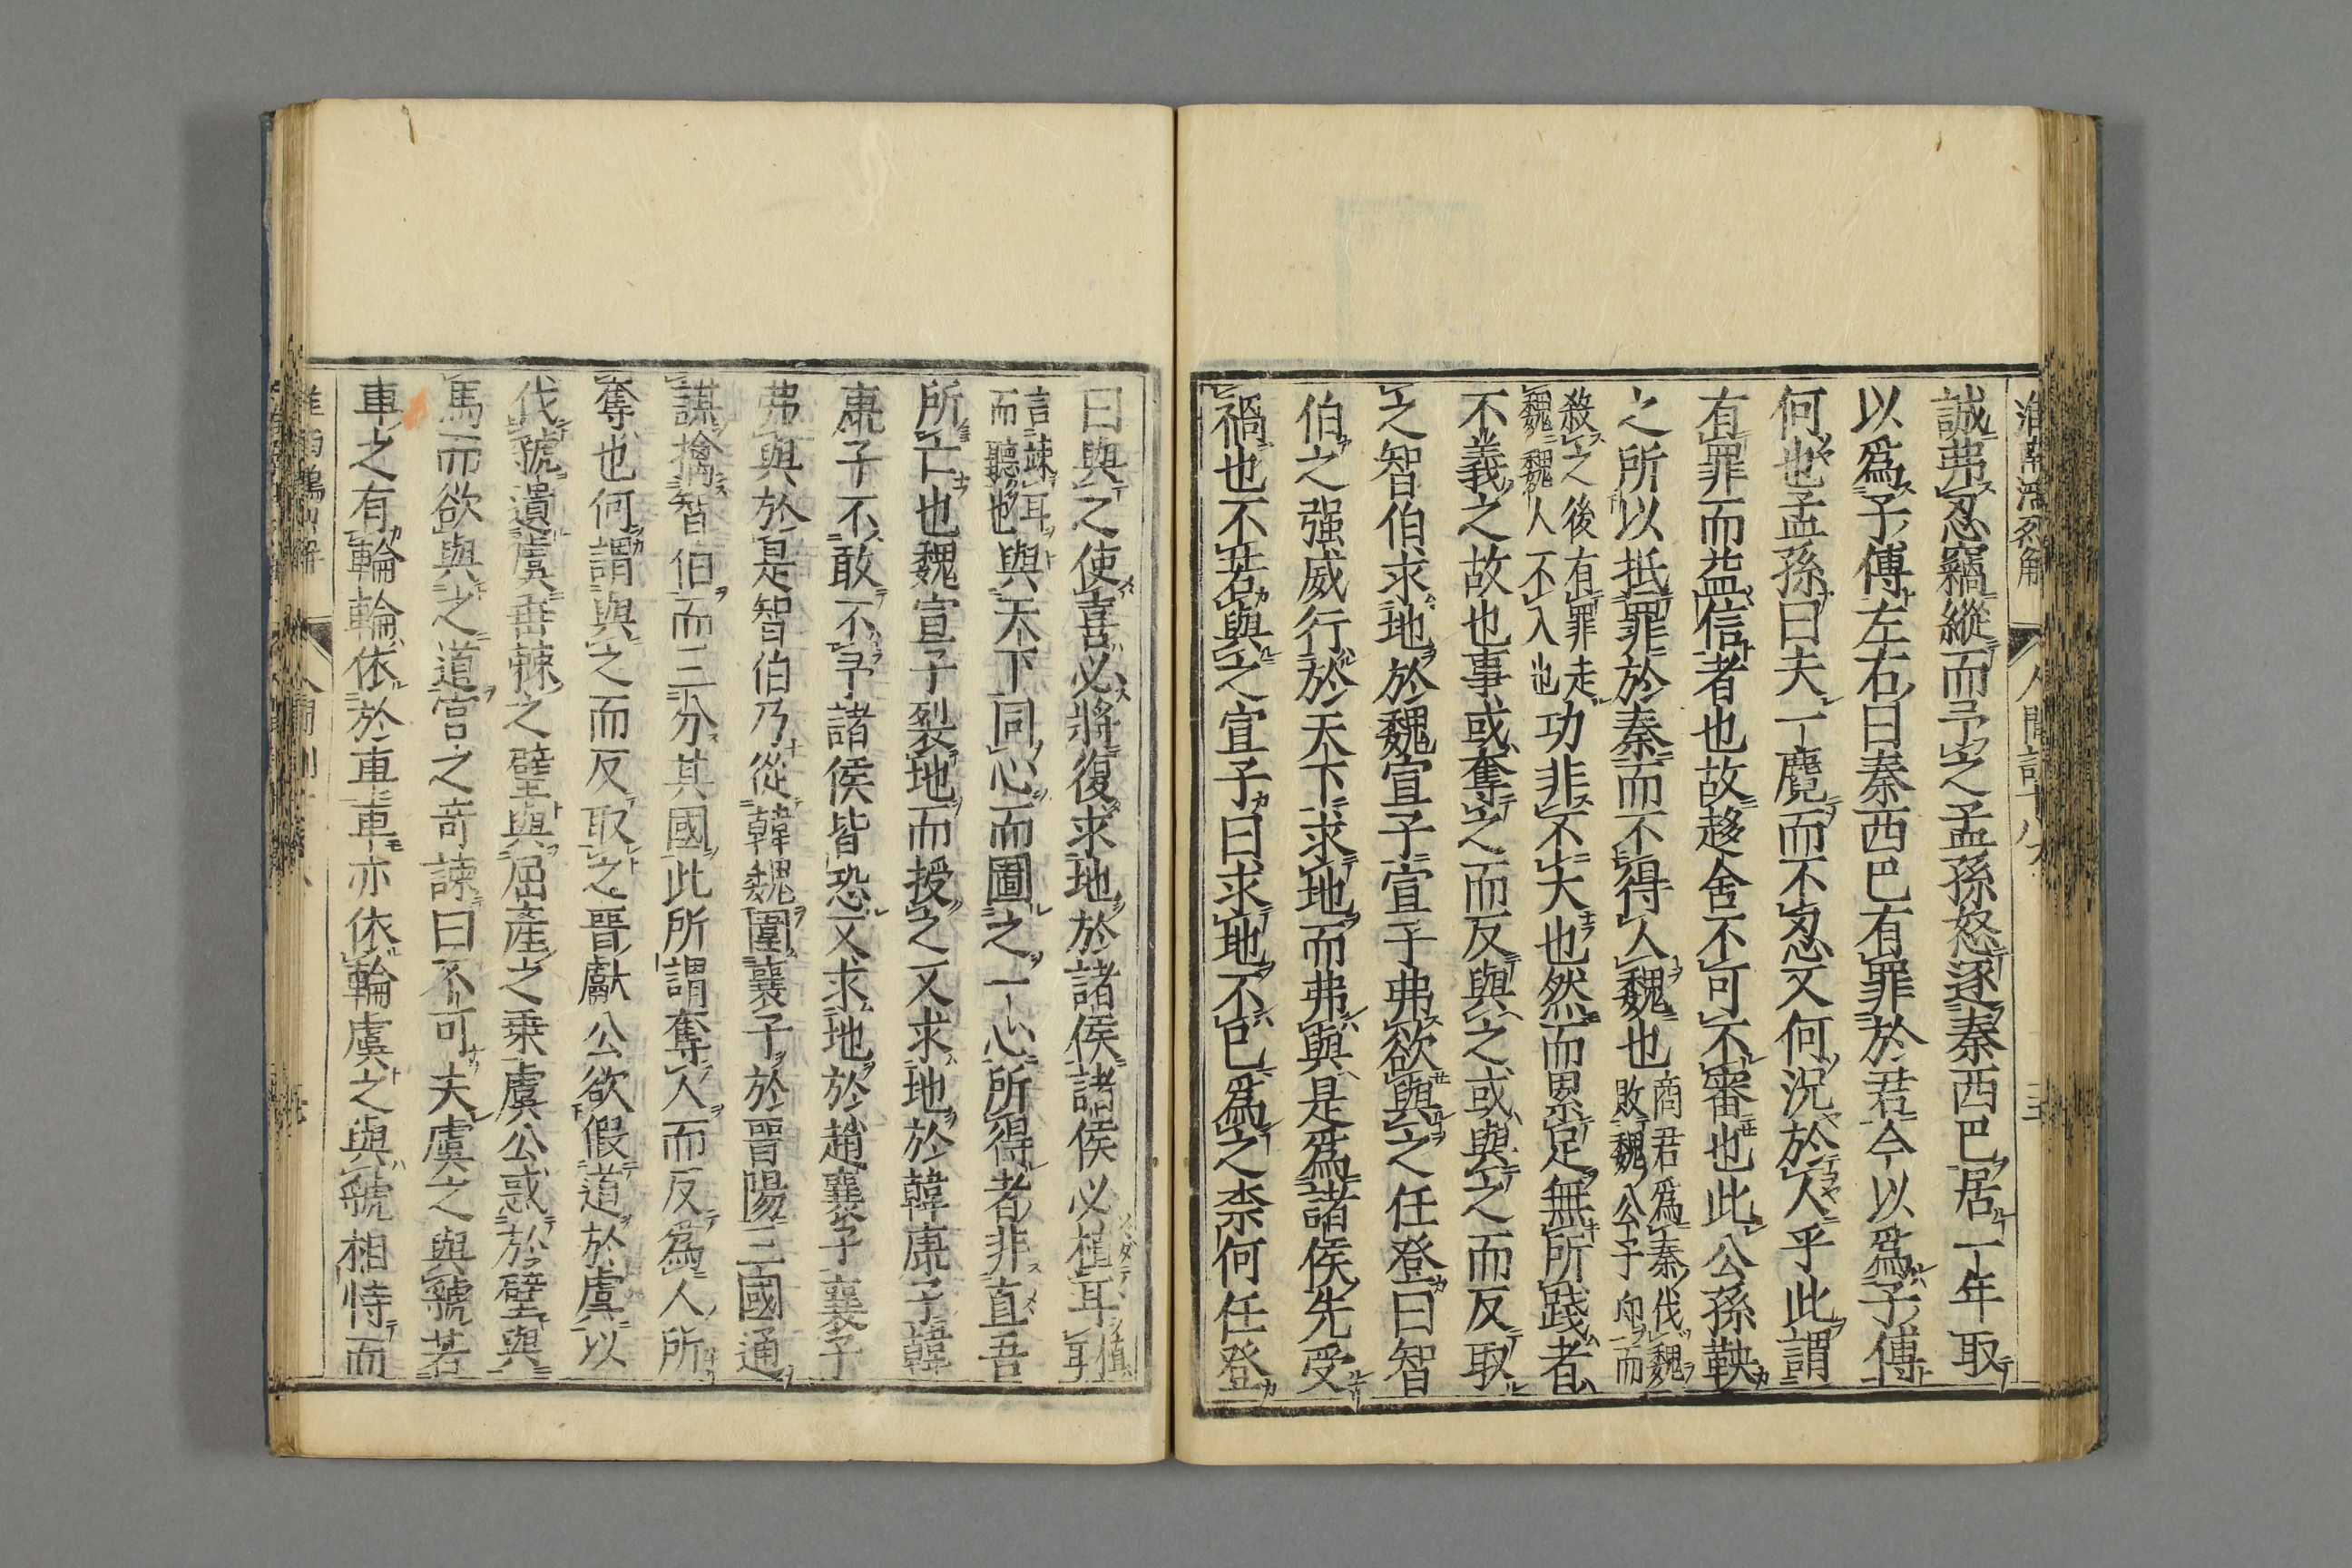 誠弗忍竊縱而予之孟孫怒逐秦西巴居一年取
以爲子傅左右曰秦西巴有罪於君今以爲子傅
何也孟孫曰夫一麑而不忍又何況於人乎此謂
有罪而益信者也故趍舍不可不審也此公孫鞅
之所以抵罪於秦而不得入魏也商君爲秦伐魏敗魏公子卬而
殺之後有罪走魏魏人不入也功非不大也然而累足無所踐者
不義之故也事或奪之而反與之或與之而反取
之智伯求地於魏宣子宣子弗欲與之任登曰智
伯之强威行於天下求地而弗與是爲諸侯先受
禍也不若與之宣子曰求地不已爲之柰何任登
曰與之使喜必將復求地於諸侯諸侯必植耳植耳
言竦耳而聽也與天下同心而圖之一心所得者非直吾
所亡也魏宣子裂地而授之又求地於韓康子韓
康子不敢不予諸侯皆恐又求地於趙襄子襄子
弗與於是智伯乃從韓魏圍襄子於晉陽三國通
謀擒智伯而三分其國此所謂奪人而反爲人所
奪也何謂與之而反取之晉獻公欲假道於虞以
伐虢遺虞垂棘之璧與屈產之乗虞公惑於璧與
馬而欲與之道宮之奇諫曰不可夫虞之與虢若
車之有輪輪依於車車亦依輪虞之與虢相恃而